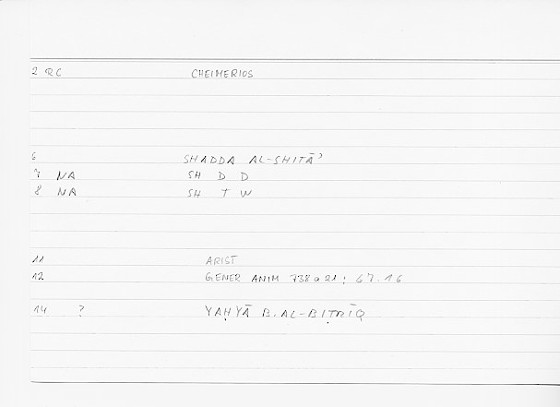 2 QC CHEIMERIOS
6 SHADDA AL-SHITĀʾ
7 NA SH D D
8 NA SH T W
11 ARIST
12 GENER ANIM 738a21; 67.16
14 ? YAḤYĀ B. AL-BIṬRĪQ